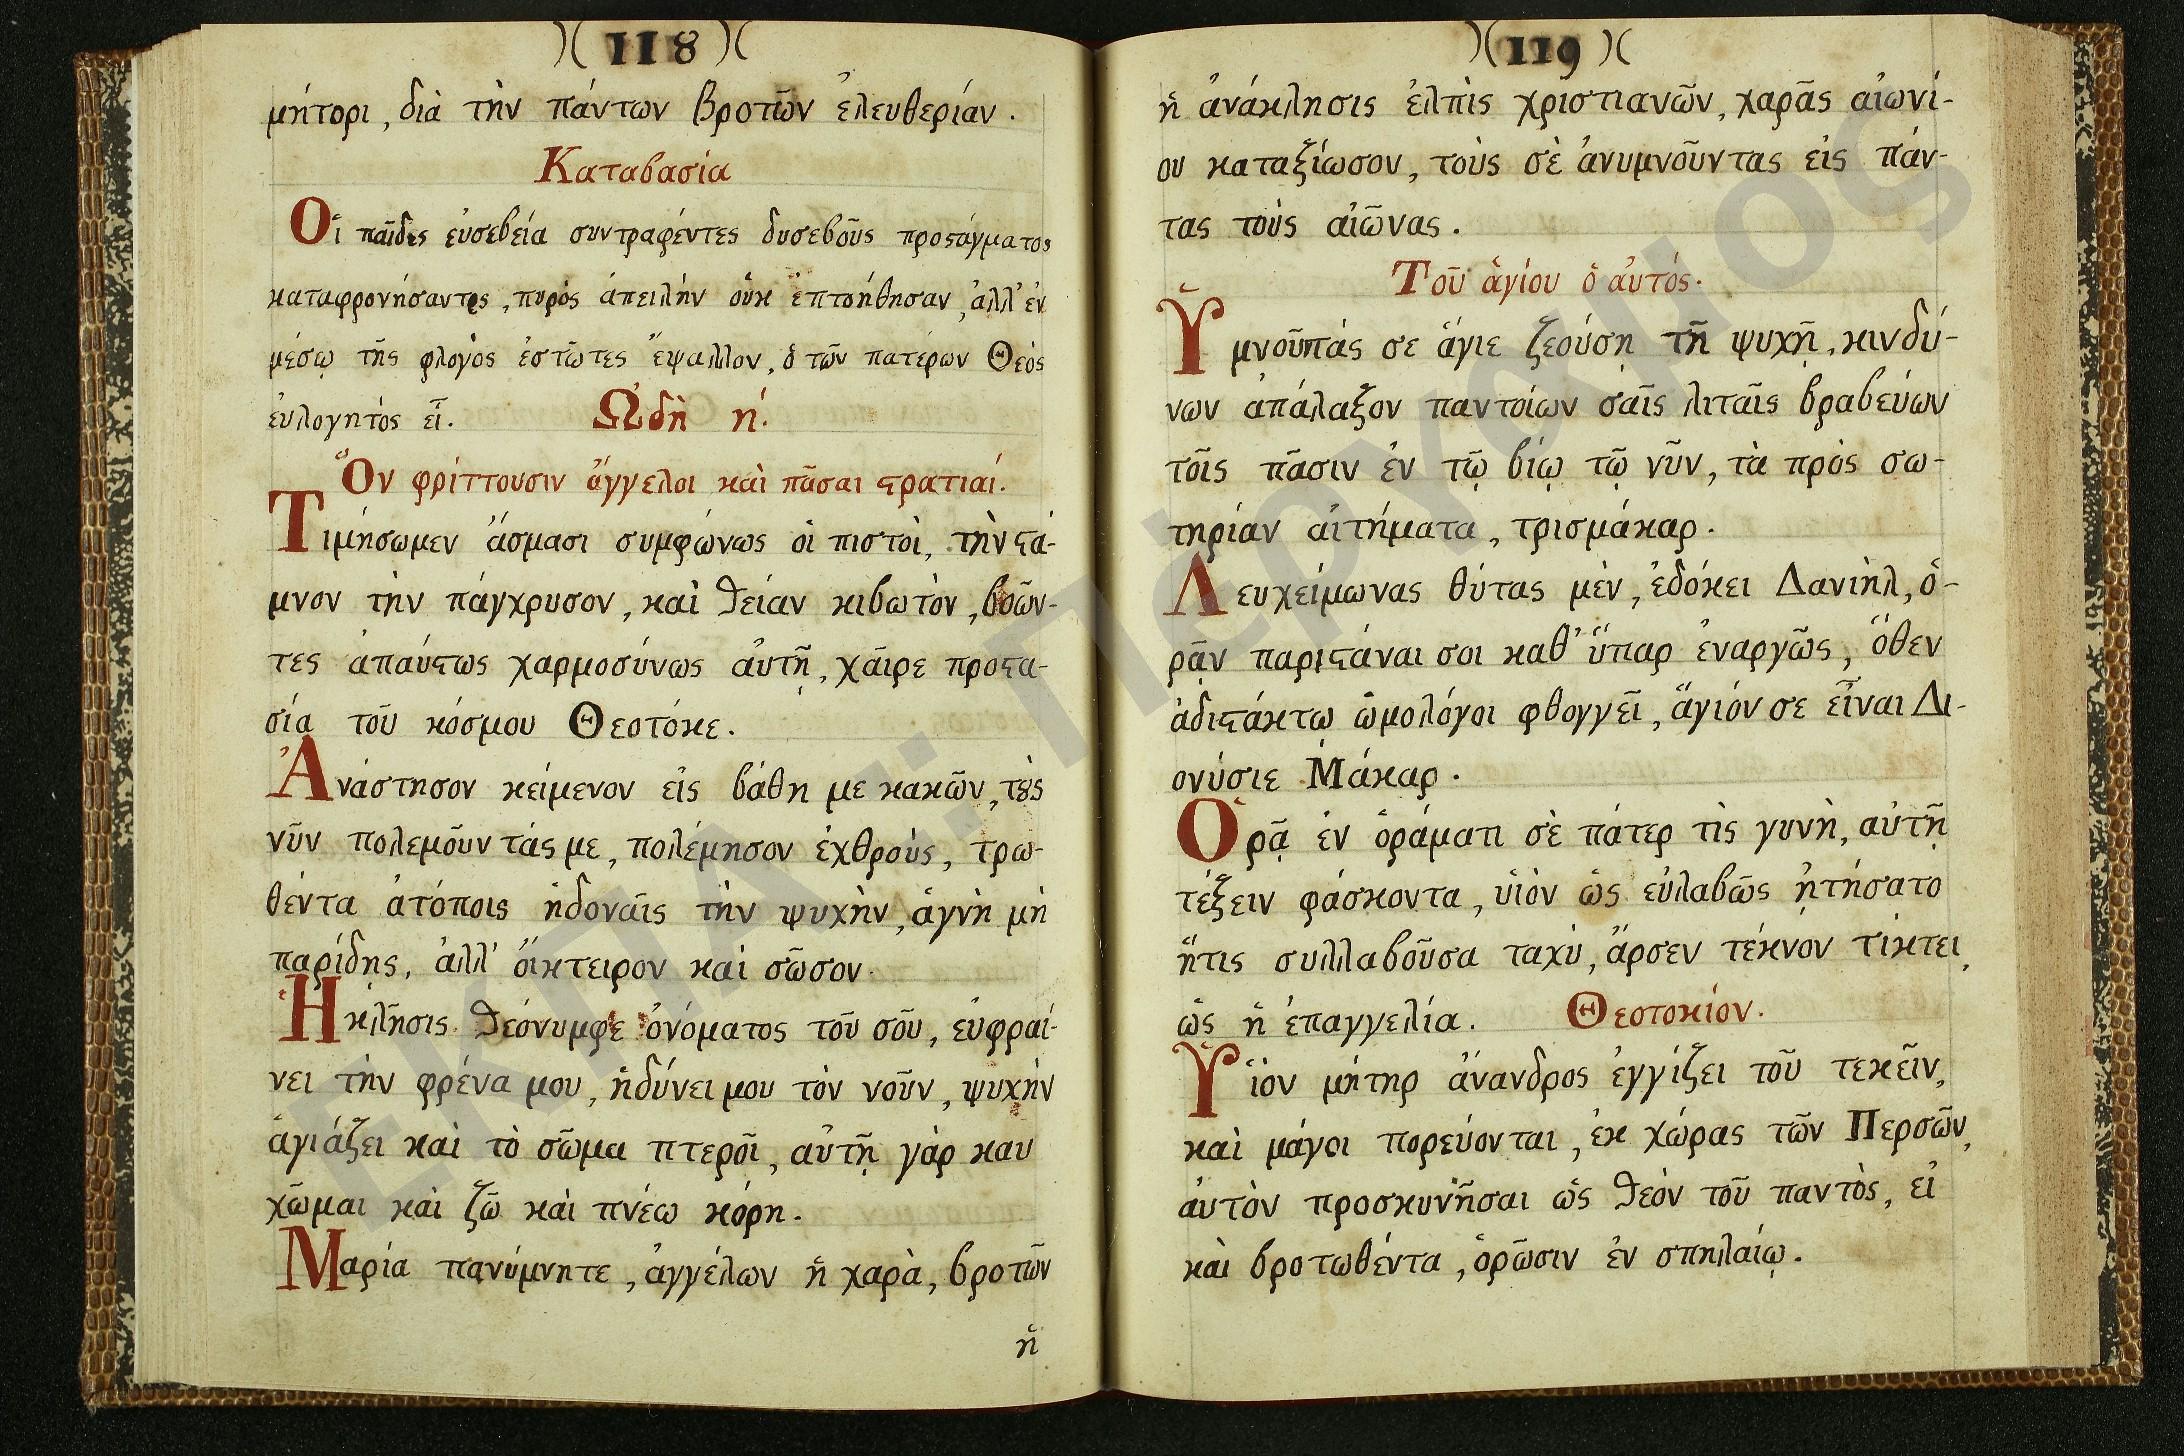 )( 118 )(
μήτορι, διὰ τὴν πάντων βροτῶν ἐλευθερίαν.
Καταβασία
Οἱ παῖδες εὐσεβεία συντραφέντες δυσεβοῦς προςάγματος
καταφρονήσαντες, πυρὸς ἀπειλὴν οὐκ ἐπτοήθησαν, ἀλλ' ἐν
μέσῳ τῆς φλογὸς ἐστῶτες ἔψαλλον, ὁ τῶν πατέρων Θεὸς
ἐυλογητὸς εἶ. Ὠδὴ η΄.
Ὃν φρίττουσιν ἄγγελοι καὶ πᾶσαι ϛρατιαί.
Τιμήσωμεν ἄσμασι συμφώνως οἱ πιστοὶ, τὴν ϛά-
μνον τὴν πάγχρυσον, καὶ θείαν κιβωτὸν, βοῶν-
τες ἀπαύϛως χαρμοσύνως αὐτῇ, χαῖρε προϛα-
σία τοῦ κόσμου Θεοτόκε.
Ἀνάστησον κείμενον εἰς βάθη με κακῶν, τȣ̀ς
νῦν πολεμοῦντάς με, πολέμησον ἐχθροὺς, τρω-
θέντα ἀτόποις ἡδοναῖς τὴν ψυχὴν, ἁγνὴ μὴ
παρίδῃς, ἀλλ' οἴκτειρον καὶ σῶσον.
Ἡ κλῆσις θεόνυμφε ὀνόματος τοῦ σοῦ, εὐφραί-
νει τὴν φρένα μου, ἡδύνει μου τὸν νοῦν, ψυχὴν
ἁγιάζει καὶ τὸ σῶμα πτεροῖ, αὐτῇ γὰρ καυ
χῶμαι καὶ ζῶ καὶ πνέω κόρη.
Μαρία πανύμνητε, ἀγγέλων ἡ χαρὰ, βροτῶν
ἡ
)( 119 )(
ἡ ἀνάκλησις ἐλπὶς χριστιανῶν, χαρᾶς αἰωνί-
ου καταξίωσον, τοὺς σὲ ἀνυμνοῦντας εἰς πάν-
τας τοὺς αἰῶνας.
Τοῦ ἁγίου ὁ αὐτός.
Ὑμνοῦπάς σε ἅγιε ζεούσῃ τῇ ψυχῇ, κινδύ-
νων ἀπάλαξον παντοίων σαῖς λιταῖς βραβεύων
τοῖς πᾶσιν ἐν τῷ βίῳ τῷ νῦν, τὰ πρὸς σω-
τηρίαν αἰτήματα, τρισμάκαρ.
Λευχείμωνας θύτας μὲν, ἐδόκει Δανιὴλ, ὁ-
ρᾷν παριϛάναι σοι καθ' ὕπαρ ἐναργῶς, ὅθεν
ἀδιϛάκτῳ ὡμολόγοι φθογγεῖ, ἅγιόν σε εἶναι Δι-
ονύσιε Μάκαρ.
Ὁρᾷ ἐν ὁράματι σὲ πάτερ τὶς γυνὴ, αὐτῇ
τέξειν φάσκοντα, υἱὸν ὡς εὐλαβῶς ᾐτήσατο
ἥτις συλλαβοῦσα ταχὺ, ἄρσεν τέκνον τίκτει,
ὡς ἡ ἐπαγγελία. Θεοτοκίον.
Υἱὸν μήτηρ ἄνανδρος ἐγγίζει τοῦ τεκεῖν,
καὶ μάγοι πορεύονται, ἐκ χώρας τῶν Περσῶν,
αὐτὸν προσκυνῆσαι ὡς θεὸν τοῦ παντὸς, εἰ
καὶ βροτωθέντα, ὁρῶσιν ἐν σπηλαίῳ.
ΕΚΠΑ:: Πέργαμος